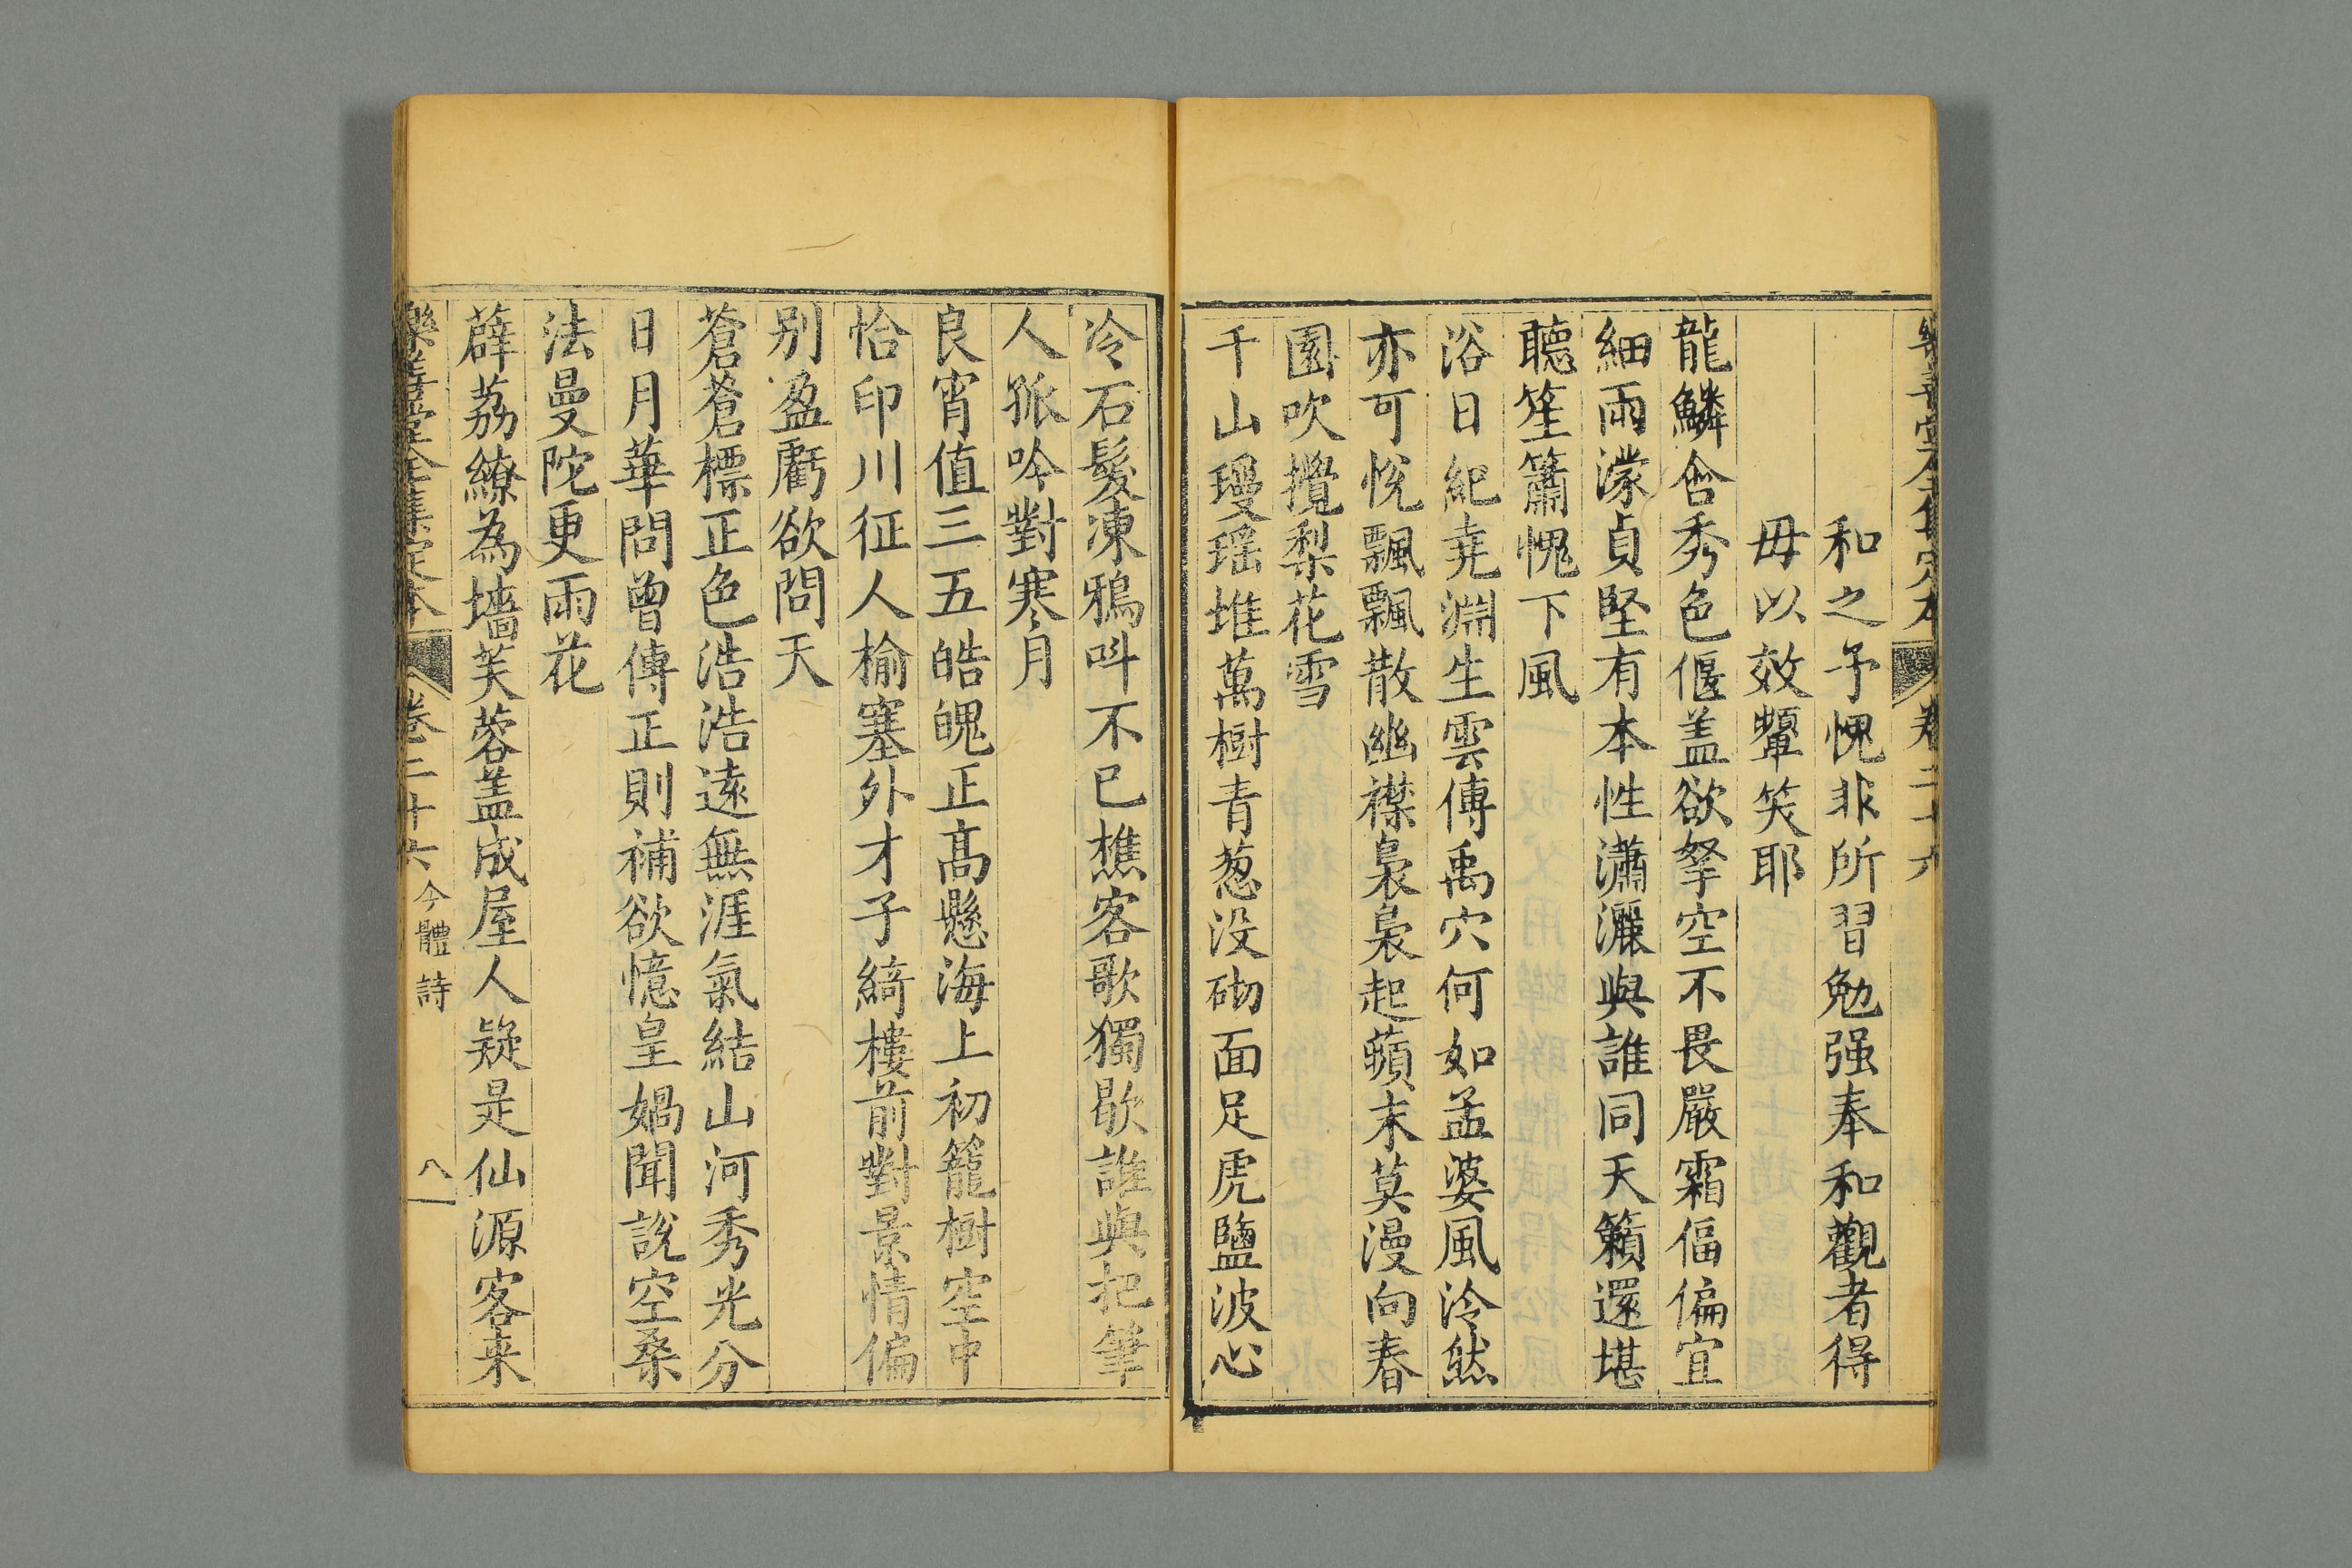 樂善堂全集定本 卷二十六
和之予愧非所習勉强奉和觀者得
毋以效顰笑耶
龍鱗含秀色偃盖欲拏空不畏嚴霜偪偏宜
細雨濛貞堅有本性瀟灑與誰同天籟還堪
聽笙簫愧下風
浴日紀堯淵生雲傳禹穴何如孟婆風泠然
亦可悅飄飄散幽襟裊裊起蘋末莫漫向春
園吹攪梨花雪
千山璦瑶堆萬樹青葱没砌面足虎鹽波心
冷石髮凍鴉呌不已樵客歌獨歇誰與把筆
人孤吟對寒月
良宵值三五皓魄正髙懸海上初籠樹空中
恰印川征人榆塞外才子綺樓前對景情偏
别盈虧欲問天
蒼蒼標正色浩浩逺無涯氣結山河秀光分
日月華問曾傳正則補欲憶皇媧聞說空桑
法曼陀更雨花
薜荔繚為墻芙蓉盖成屋人疑是仙源客来
樂善堂全集定本 卷二十六 今體詩 八